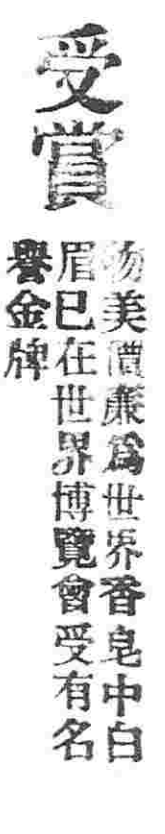 受賞
物美價廉爲世界香皂中白
眉已在世界博覽會受有名
譽金牌